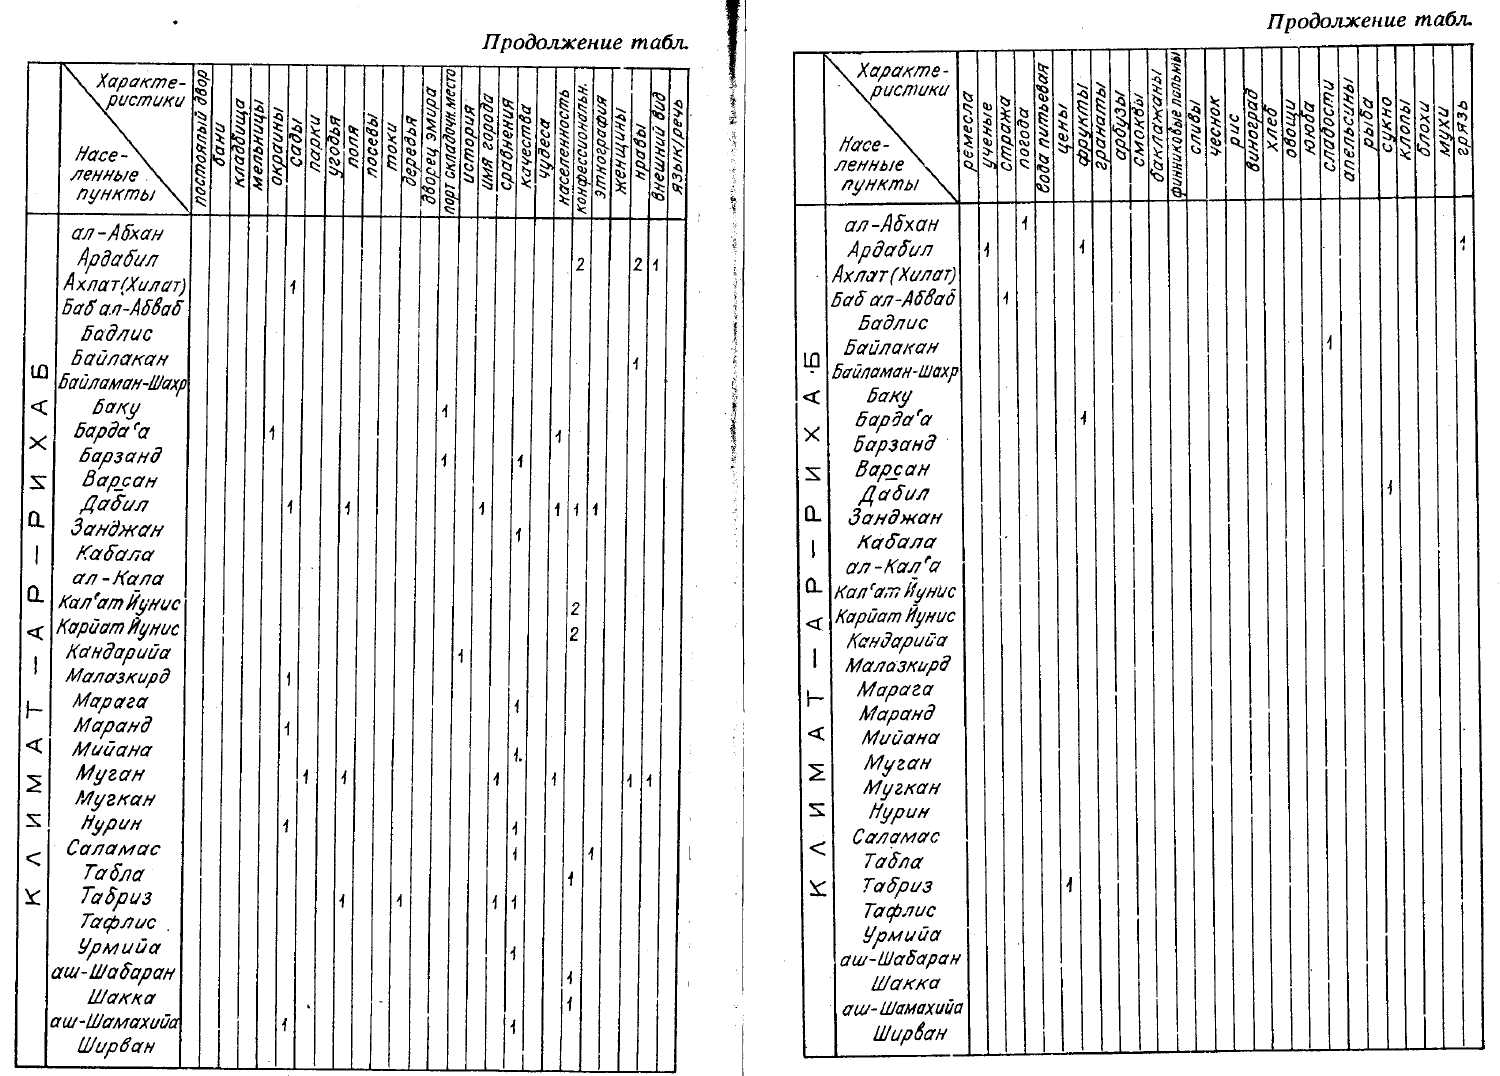 Продолжение табл.
Характе-
ристики
Насе-
ленные
пункты
постоялый двор
бани
кладбища
мельницы
окраины
сады
парки
угодья
поля
посевы
токи
деревья
дворец эмира
порт складочн. место
история
имя города
сравнения
качества
чудеса
населенность
конфессиональн.
этнография
женщины
нравы
внешний вид
язык/речь
КЛИМАТ-АР-РИХАБ
ал-Абхан
Ардабил 2 2 1
Ахлат (Хилат) 1
Баб ал-Абваб
Бадлис
Байлакан 1
Байламан-Шахр
Баку 1
Барда‘а 1 1
Барзанд 1 1
Варсан
Дабил 1 1 1 1 1 1
Занджан 1
Кабала
ал-Кала
Кал‘ат Йунис 2
Карйат Йунис 2
Кандарийа 1
Малазкирд 1
Марага 1
Маранд 1
Мийана 1
Муган 1 1 1 1 1 1
Мугкан
Нурин 1 1
Саламас 1 1
Табла 1
Табриз 1 1 1 1
Тафлис
Урмийа 1
аш-Шабаран 1
Шакка 1
аш-Шамахийа 1 1
Ширван
Продолжение табл.
Характе-
ристики
Насе-
ленные
пункты
ремесла
ученые
спаржа
погода
вода питьевая
цены
фрукты
гранаты
арбузы
смоквы
баклажаны
финиковые пальмы
сливы
чеснок
рис
виноград
хлеб
овощи
ююба
сладости
апельсины
рыба
сукно
клопы
блохи
мухи
грязь
КЛИМАТ-АР-РИХАБ
ал-Абхан 1
Ардабил 1 1 1
Ахлат (Хилат)
Баб ал-Абваб 1
Бадлис
Байлакан 1
Байламан-Шахр
Баку
Барда‘а 1
Барзанд
Варсан
Дабил 1
Занджан
Кабала
ал-Кал‘а
Кал‘ат Йунис
Карйат Йунис
Кандарийа
Малазкирд
Марага
Маранд
Мийана
Муган
Мугкан
Нурин
Саламас
Табла
Табриз 1
Тафлис
Урмийа
аш-Шабаран
Шакка
аш-Шамахийа
Ширван